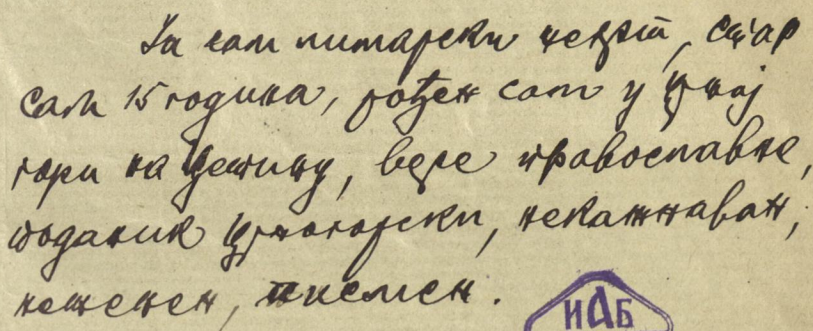 Ја сам лимарски шегрт, стар
сам 15 година, рођен сам у Црној
гори на Цетињу, вере православне,
поданик Црногорски, некажњаван,
нежењен, писмен.
ИАБ